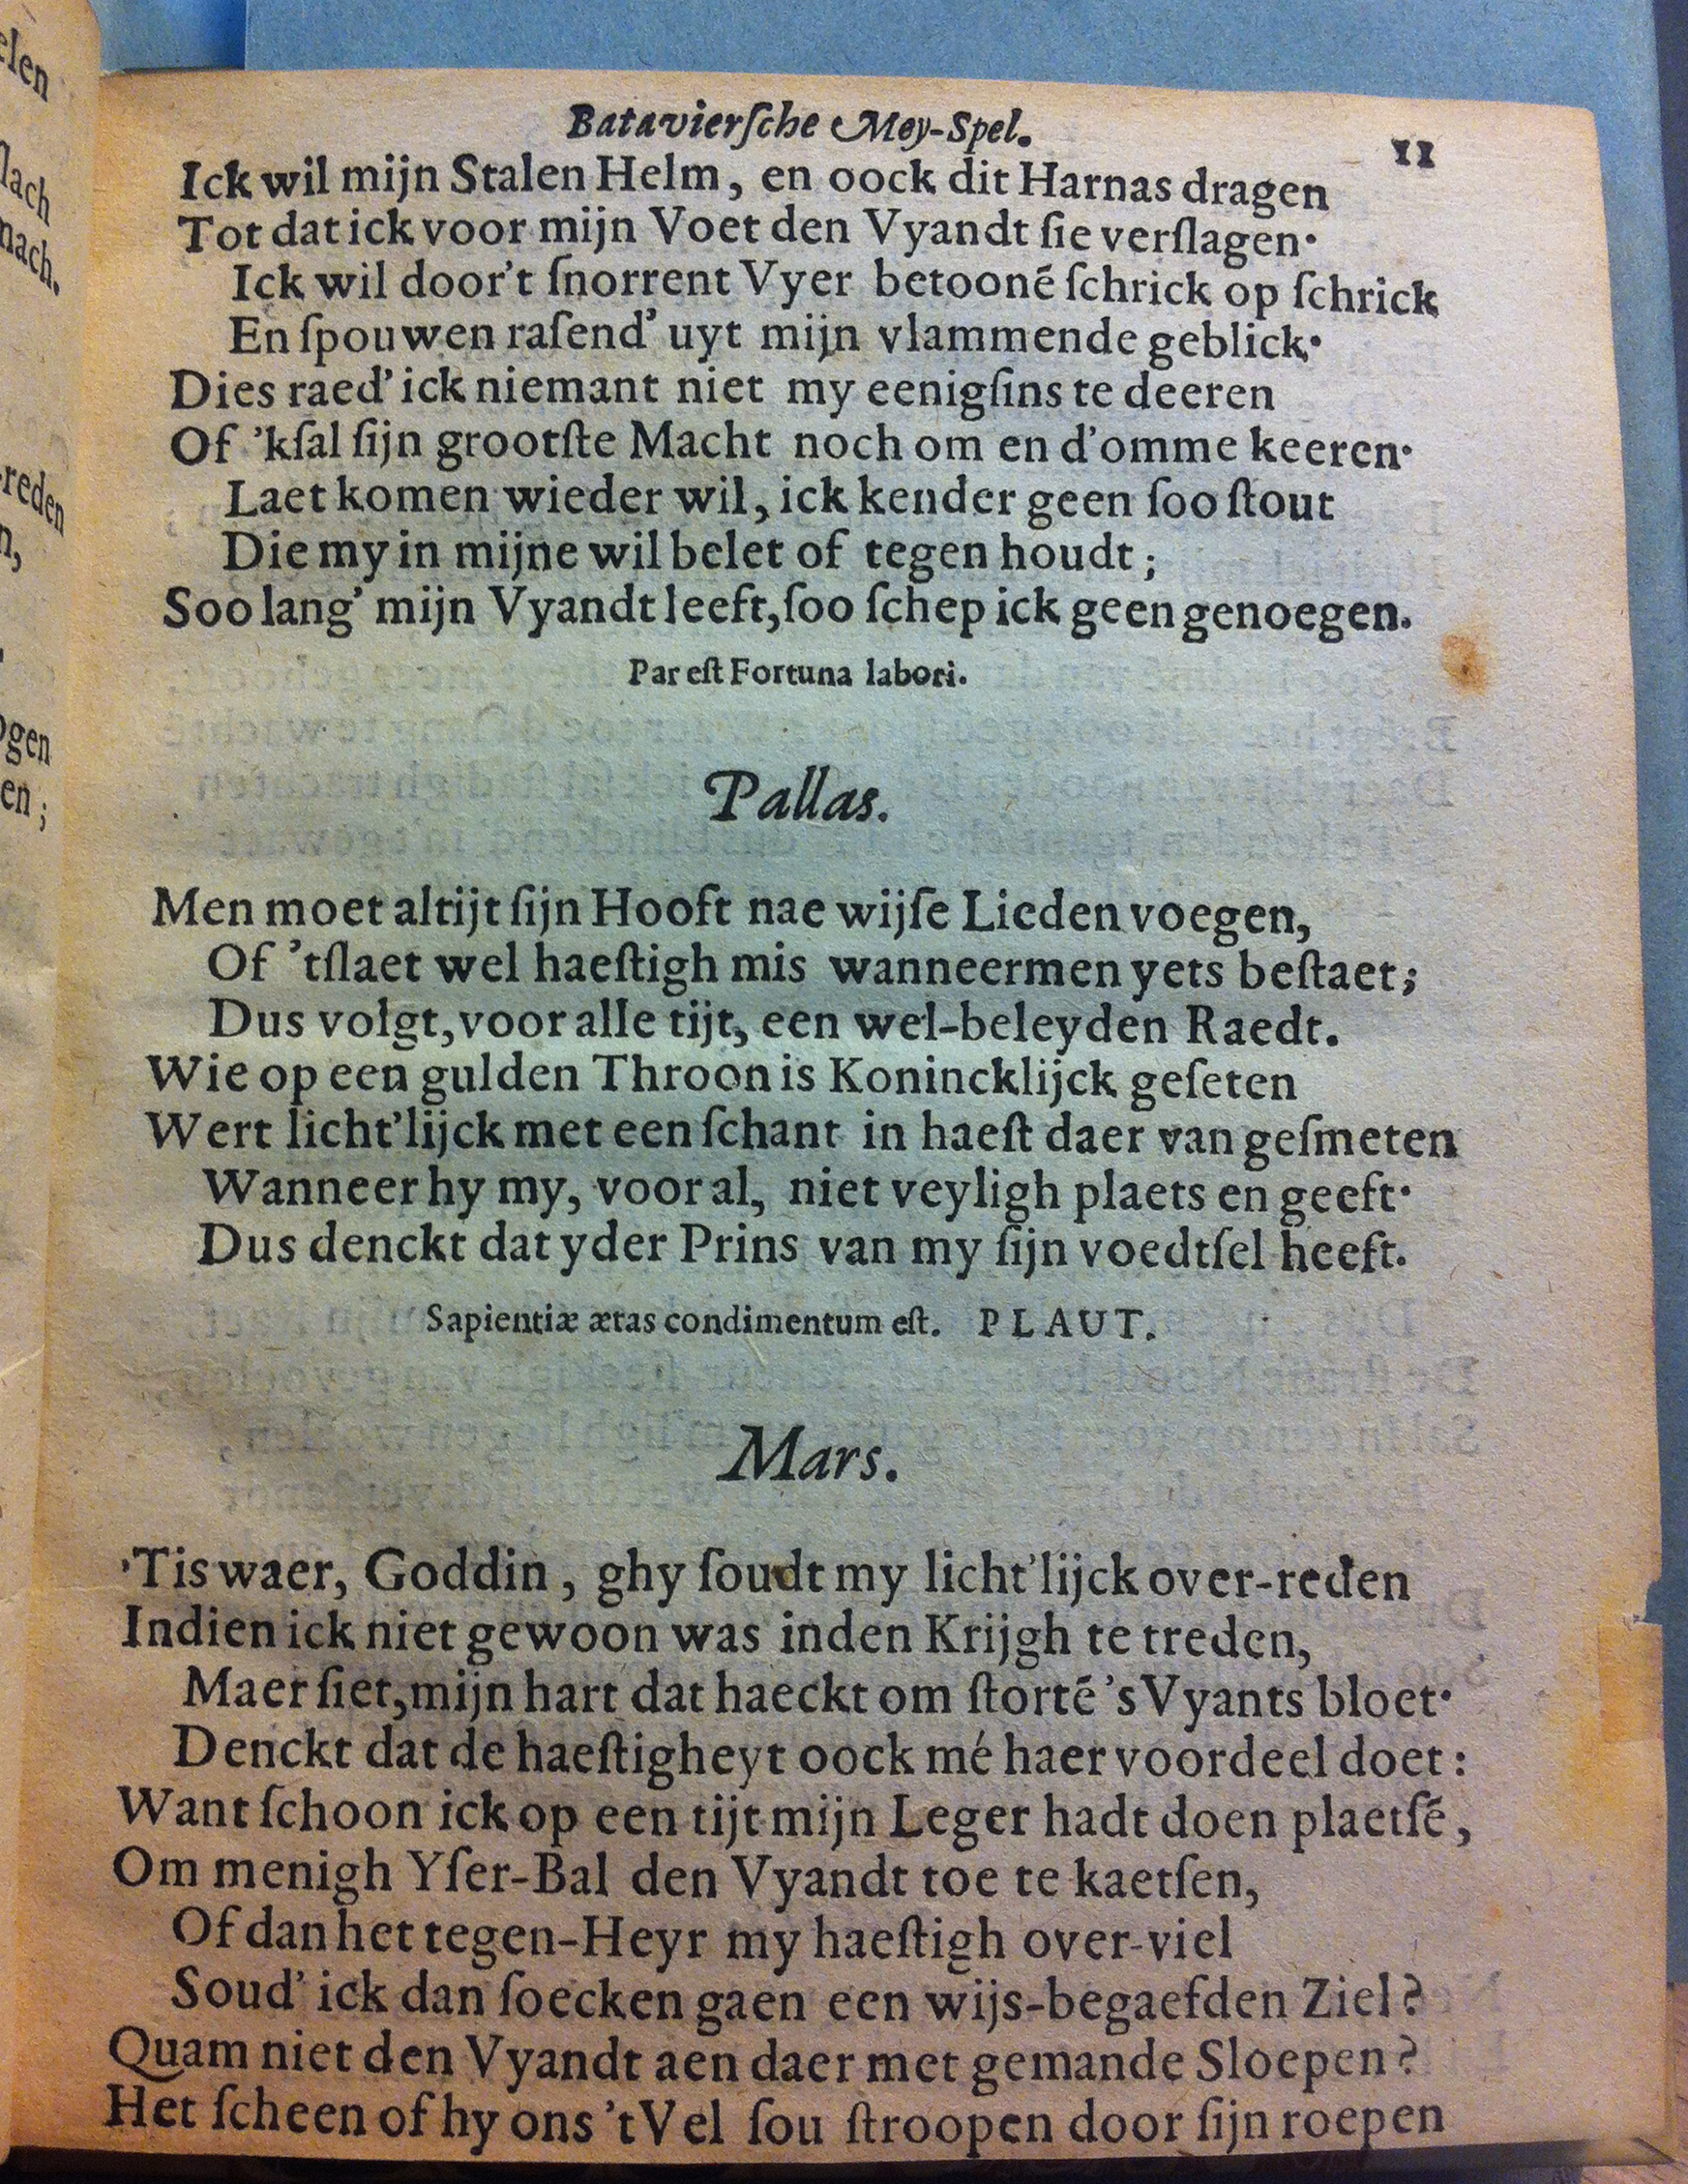 Bataviersche Mey-Spel.
11
Ick wil mijn Stalen Helm, en oock dit Harnas dragen
Tot dat ick voor mijn Voet den Vyandt ſie verſlagen·
Ick wil door't ſnorrent Vyer betooné ſchrick op ſchrick
En ſpouwen raſend' uyt mijn vlammende geblick·
Dies raed' ick niemant niet my eenigſins te deeren
Of 'kſal ſijn grootſte Macht noch om en d'omme keeren·
Laet komen wieder wil, ick kender geen ſoo ſtout
Die my in mijne wil belet of tegen houdt;
Soo lang' mijn Vyandt leeft, ſoo ſchep ick geen genoegen.
Par eſt Fortuna labori.
Pallas.
Men moet altijt ſijn Hooft nae wijſe Lieden voegen,
Of 'tſlaet wel haeſtigh mis wanneermen yets beſtaet;
Dus volgt, voor alle tijt, een wel-beleyden Raedt.
Wie op een gulden Throon is Konincklijck geſeten
Wert licht'lijck met een ſchant in haeſt daer van geſmeten
Wanneer hy my, voor al, niet veyligh plaets en geeft·
Dus denckt dat yder Prins van my ſijn voedtſel heeft.
Sapientiæ ætas condimentum eſt. PLAUT.
Mars.
'Tis waer, Goddin, ghy ſoudt my licht'lijck over-reden
Indien ick niet gewoon was inden Krijgh te treden,
Maer ſiet, mijn hart dat haeckt om ſtorté 's Vyants bloet·
Denckt dat de haeſtigheyt oock mé haer voordeel doet:
Want ſchoon ick op een tijt mijn Leger hadt doen plaetſé,
Om menigh Yſer-Bal den Vyandt toe te kaetſen,
Of dan het tegen-Heyr my haeſtigh over-viel
Soud' ick dan ſoecken gaen een wijs-begaefden Ziel?
Quam niet den Vyandt aen daer met gemande Sloepen?
Het ſcheen of hy ons 't Vel ſou ſtroopen door ſijn roepen
elen
reden
ogen
en;